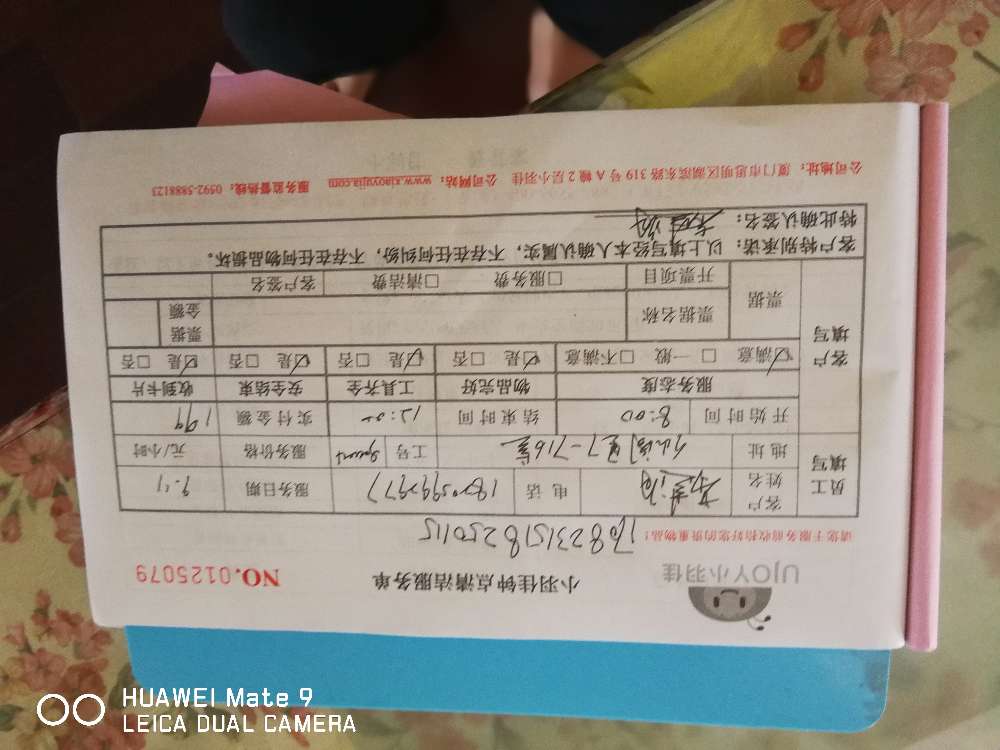 UJOY小羽佳
小羽佳钟点清洁服务单
NO.0125079
请您于服务前收拾好您的贵重物品!
1708231518250115
员工填写
客户姓名
电话
服务日期 9.11
地址 7-716室
工号
服务价格 元/小时
开始时间 8:00 结束时间 12:00 实付金额 199
客户填写
服务态度 物品完好 工具齐全 安全结束 收到卡片
☑满意 □一般 □不满意 ☑是 □否 ☑是 □否 ☑是 □否 ☑是 □否
票据 票据名称 票据金额
开票项目 □服务费 □清洁费 客户签名
客户特别承诺:以上填写经本人确认属实,不存在任何纠纷,不存在任何物品损坏。
特此确认签名:
公司地址:厦门市思明区湖滨东路319号A幢2层小羽佳 公司网站:www.xiaoyujia.com 服务监督热线:0592-5888123
HUAWEI Mate 9
LEICA DUAL CAMERA